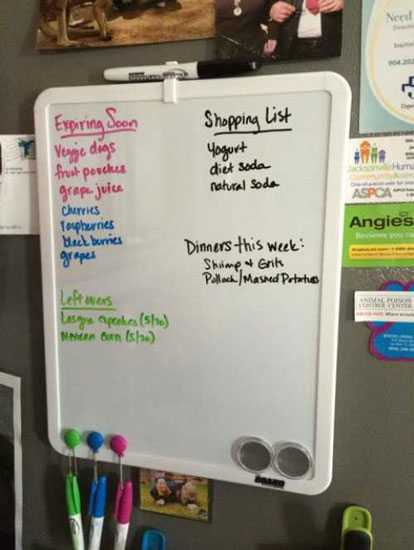 Expiring Soon
Veggie dogs
fruit pouches
grape juice
cherries
raspberries
blackberries
grapes
Leftovers
Lasagna cupcakes (5/20)
Mexican corn (5/20)
Shopping List
Yogurt
diet soda
natural soda
Dinners this week:
Shrimp & Grits
Pollock/Mashed Potatoes
BOARD
Need
904.202
Jacksonville Huma
Community Anim
ASPCA
Angie's
Reviews you ca
ANIMAL POISON
CONTROL CENTER